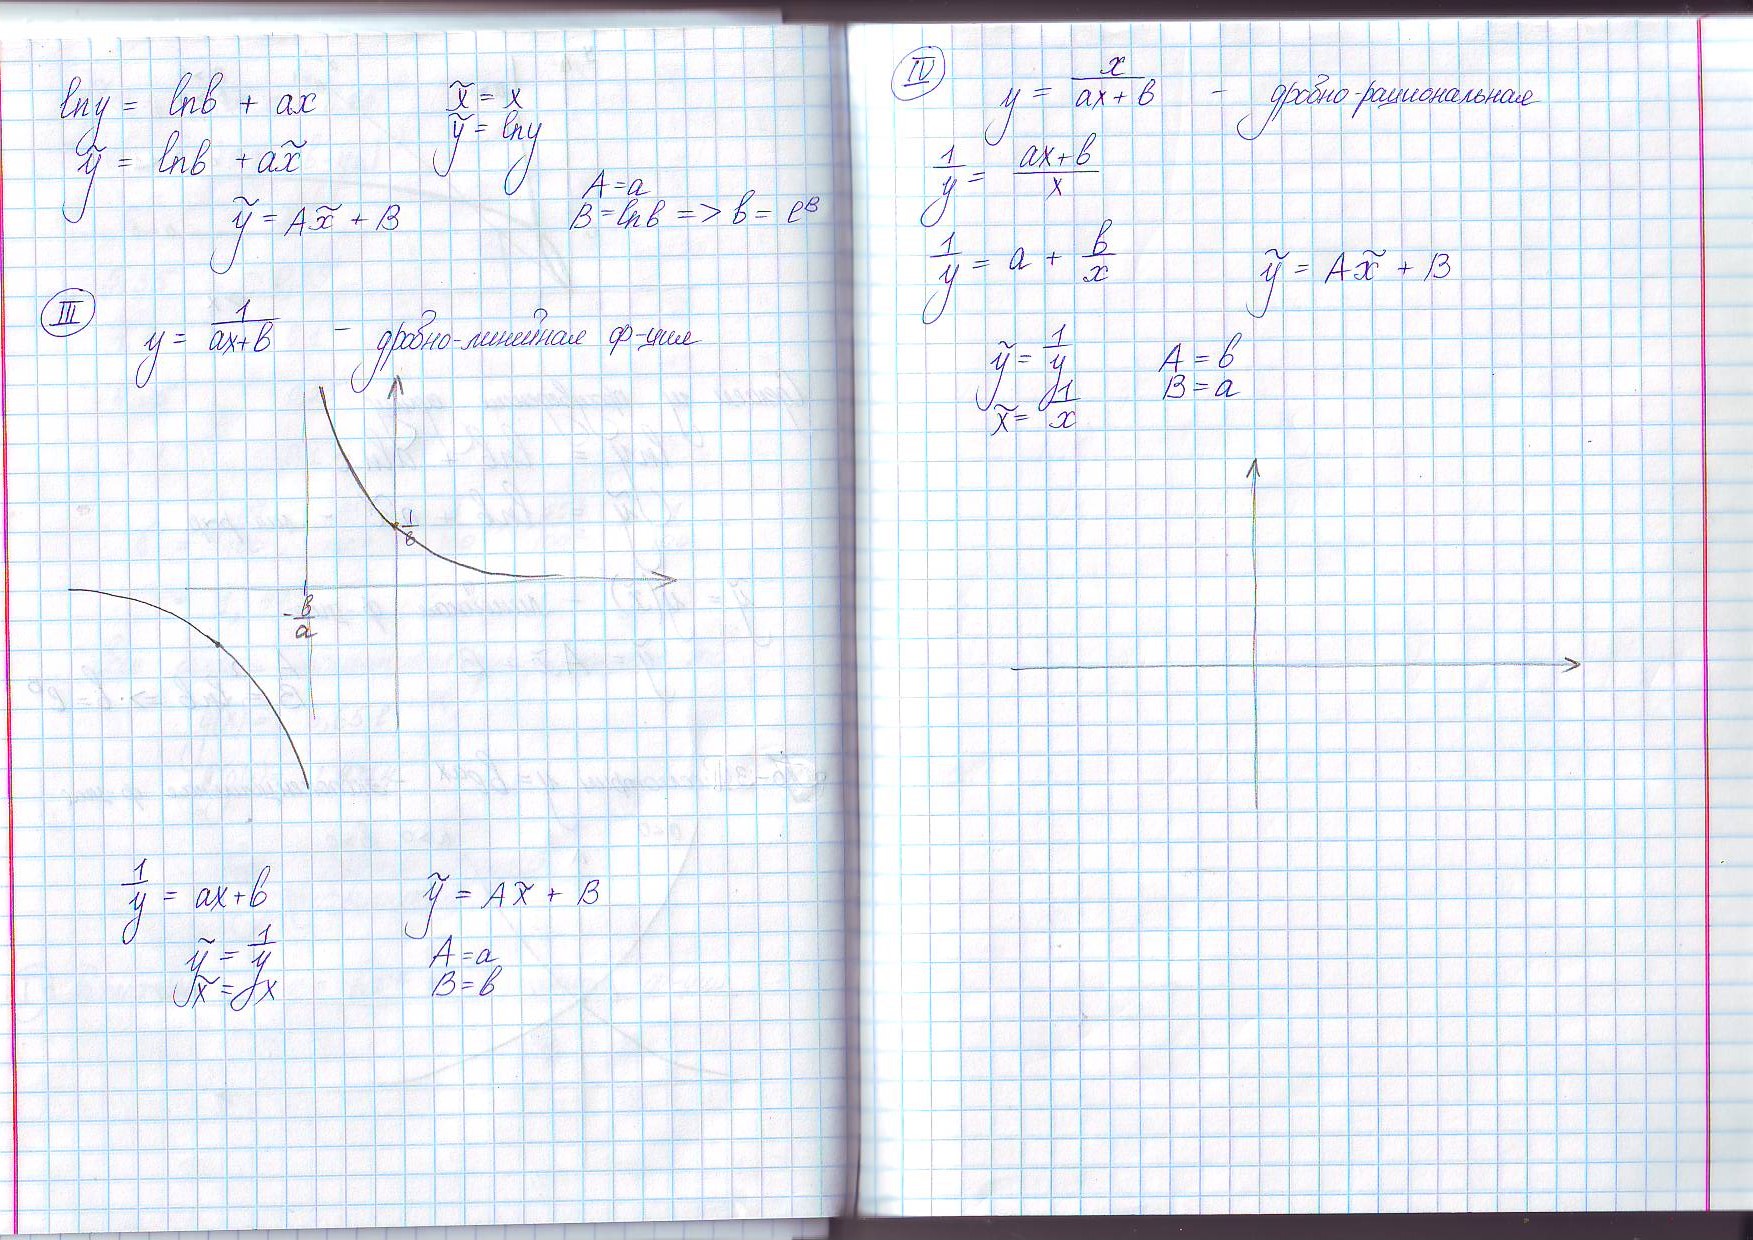 ln y = ln b + ax
x̃ = x
ỹ = ln y
ỹ = ln b + ax̃
ỹ = Ax̃ + B
A = a
B = ln b => b = e^B
III
y = 1/(ax+b) - дробно-линейная ф-ция
1/b
-b/a
1/y = ax+b
ỹ = Ax̃ + B
ỹ = 1/y
x̃ = x
A = a
B = b
IV
y = x/(ax+b) - дробно-рациональная
1/y = (ax+b)/x
1/y = a + b/x
ỹ = Ax̃ + B
ỹ = 1/y
x̃ = 1/x
A = b
B = a